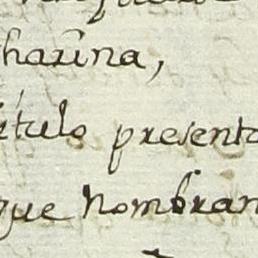 harina,
título presenta
que nombran